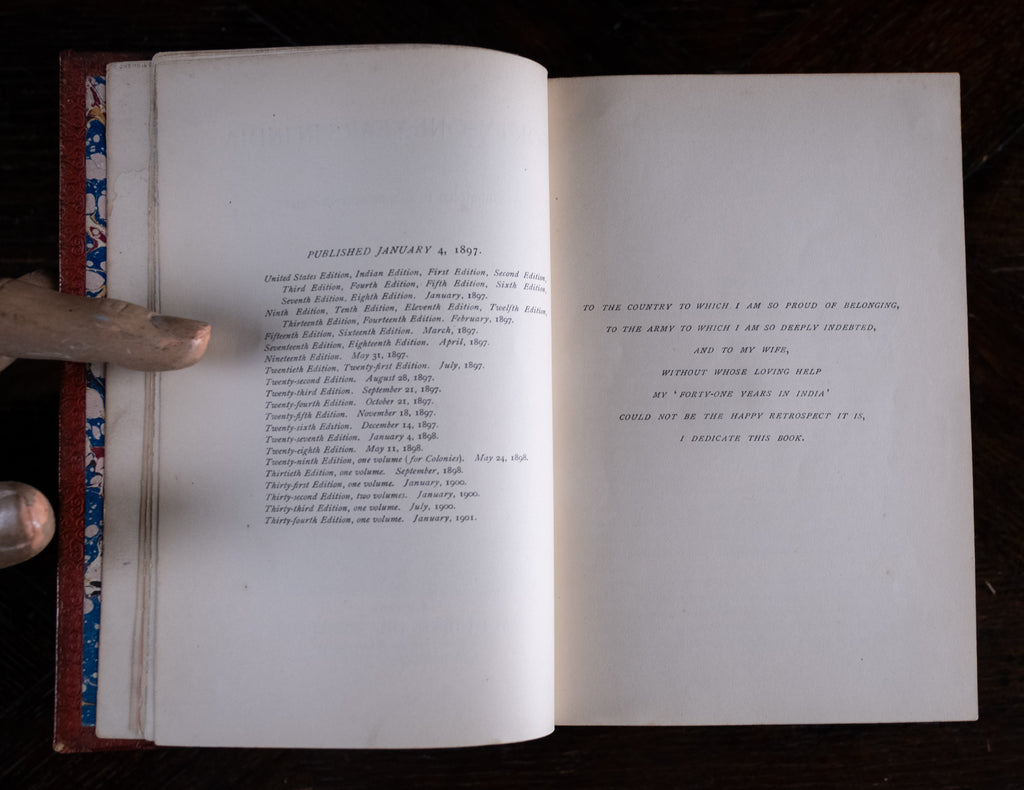 PUBLISHED JANUARY 4, 1897.
United States Edition, Indian Edition, First Edition, Second Edition,
Third Edition, Fourth Edition, Fifth Edition, Sixth Edition,
Seventh Edition, Eighth Edition. January, 1897.
Ninth Edition, Tenth Edition, Eleventh Edition, Twelfth Edition,
Thirteenth Edition, Fourteenth Edition. February, 1897.
Fifteenth Edition, Sixteenth Edition. March, 1897.
Seventeenth Edition, Eighteenth Edition. April, 1897.
Nineteenth Edition. May 31, 1897.
Twentieth Edition, Twenty-first Edition. July, 1897.
Twenty-second Edition. August 28, 1897.
Twenty-third Edition. September 21, 1897.
Twenty-fourth Edition. October 21, 1897.
Twenty-fifth Edition. November 18, 1897.
Twenty-sixth Edition. December 14, 1897.
Twenty-seventh Edition. January 4, 1898.
Twenty-eighth Edition. May 11, 1898.
Twenty-ninth Edition, one volume (for Colonies). May 24, 1898.
Thirtieth Edition, one volume. September, 1898.
Thirty-first Edition, one volume. January, 1900.
Thirty-second Edition, two volumes. January, 1900.
Thirty-third Edition, one volume. July, 1900.
Thirty-fourth Edition, one volume. January, 1901.
TO THE COUNTRY TO WHICH I AM SO PROUD OF BELONGING,
TO THE ARMY TO WHICH I AM SO DEEPLY INDEBTED,
AND TO MY WIFE,
WITHOUT WHOSE LOVING HELP
MY 'FORTY-ONE YEARS IN INDIA'
COULD NOT BE THE HAPPY RETROSPECT IT IS,
I DEDICATE THIS BOOK.